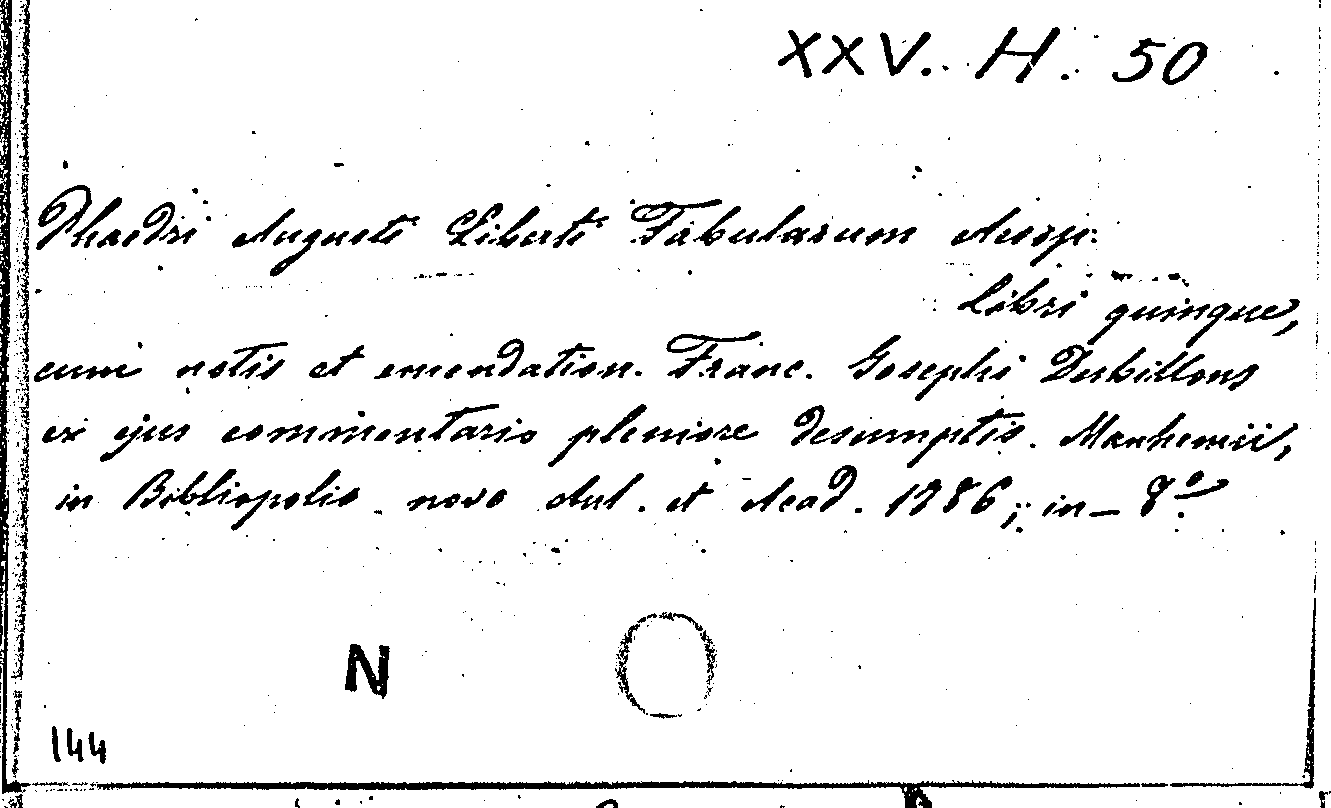 XXV. H. 50
Phaedri Augusti Liberti Fabularum Aesop.
Libri quinque,
cum notis et emendation. Franc. Josephi Desbillons
ex ejus commentario pleniore desumptis. Manhemii,
in Bibliopolio novo Aul. et Acad. 1786, in-8º
N
144